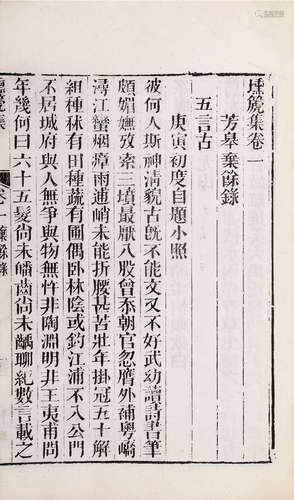 壎箎集卷一
芳皋棄餘錄
五言古
庚寅初度自題小照
彼何人斯神清貌古旣不能文又不好武幼讀詩書筆
頗媚嫵攷索三墳最厭八股曾忝朝官忽膺外補粵嶠
潯江蠻烟瘴雨逋峭未能折腰甚苦壯年掛冠五十解
組種秫有田種蔬有圃偶臥林陰或釣江浦不入公門
不居城府與人無爭與物無忤非陶淵明非王夷甫問
年幾何曰六十五髮尚未皤齒尚未齲聊紀數言載之
壎箎集 卷一 棄餘錄